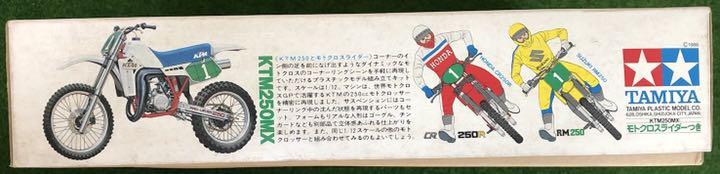 KTM
1
KTM250MX
《KTM250とモトクロスライダー》コーナーのイン側の足を前になげ出すようなダイナミックなモトクロスのコーナーリングシーンを手軽に再現していただけるプラスチックモデル組み立てキットです。スケールは1/12。マシンは、世界モトクロスGPで活躍するKTMの250ccモトクロッサーを精密に再現しました。サスペンションにはコーナーリング中の沈んだ状態を再現するパーツもセット、フォームもリアルな人形はゴーグル、チンガードなども別部品で立体感あふれる仕上がりを楽しめます。また、同じ1/12スケールの他のモトクロッサーと組み合わせてみるのもよいでしょう。
HONDA
1
HONDA CR250R
CR 250R
1
SUZUKI RM250
RM250
©1986
TAMIYA
TAMIYA PLASTIC MODEL CO.
628, OSHIKA, SHIZUOKA-CITY, JAPAN.
KTM250MX
モトクロスライダーつき